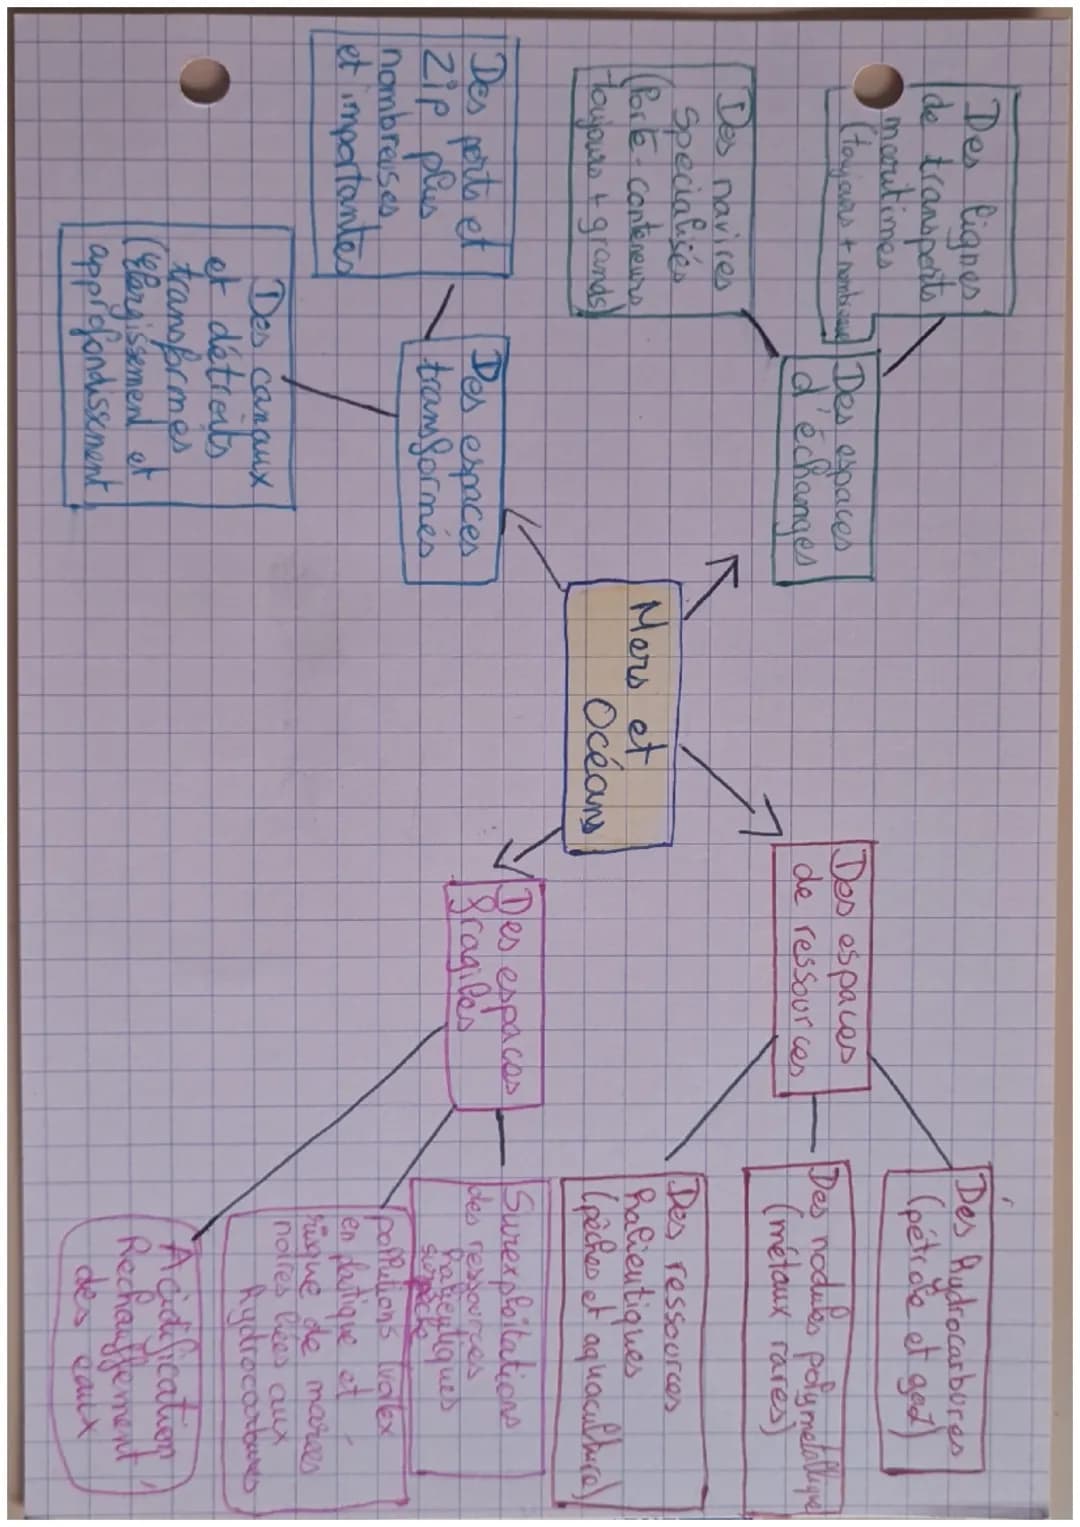 Mers et
Océans
Des espaces
d'échanges
Des lignes
de transports
maritimes
(toujours + nombreux)
Des navires
Spécialisés
(Porte-conteneurs
toujours + grands)
Des espaces
transformés
Des ports et
Zip plus
nombreuses
et importantes
Des canaux
et détroits
transformés
(élargissement et
approfondissement
Des espaces
de ressources
Des hydrocarbures
(pétrole et gaz)
Des nodules polymétallique
(métaux rares)
Des ressources
halieutiques
(pêches et aquaculture)
Des espaces
fragiles
Surexploitations
des ressources
halieutiques
surpêche
pollutions vortex
en plastique et
risque de marées
noires liées aux
hydrocarbures
Acidification,
Rechauffement
des eaux